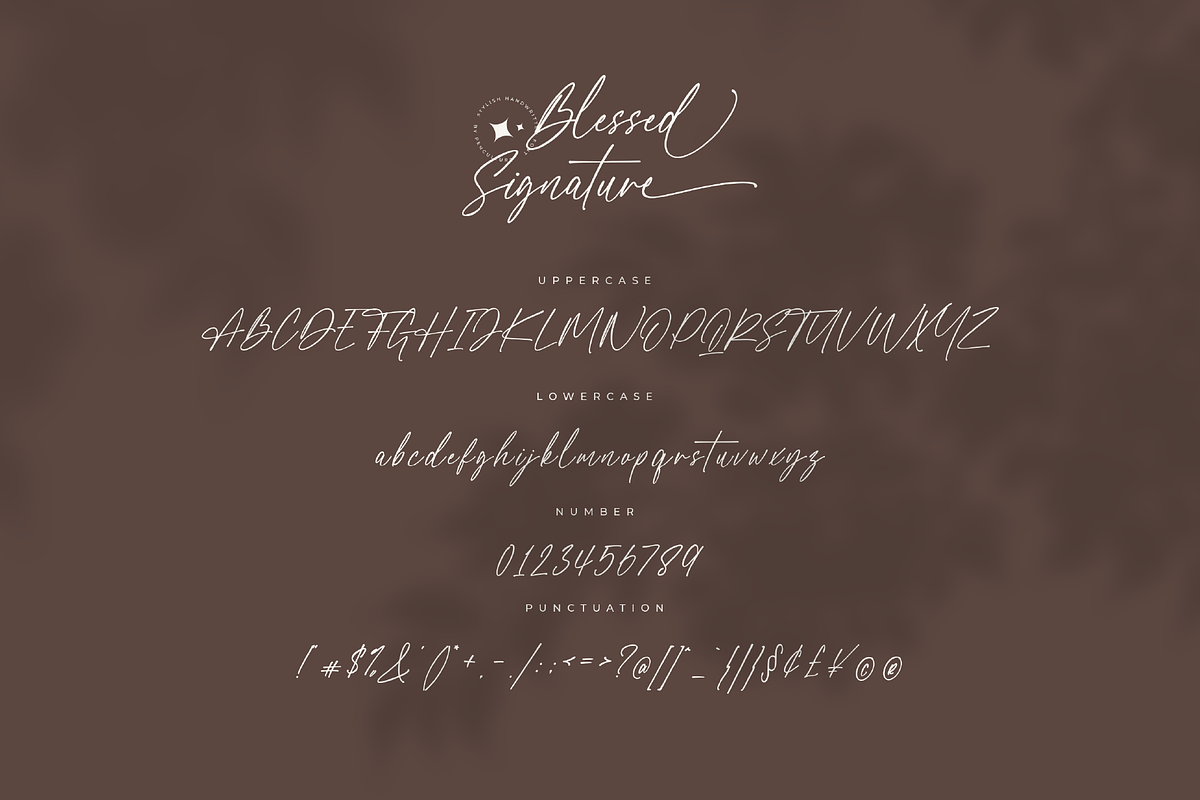 STYLISH HANDWRITTEN
Blessed
Signature
UPPERCASE
ABCDEFGHIJKLMNOPQRSTUVWXYZ
LOWERCASE
abcdefghijklmnopqrstuvwxyz
NUMBER
0123456789
PUNCTUATION
!"#$%&'()*+,-./:;<=>?@[\]^_`{|}§¢£¥©®